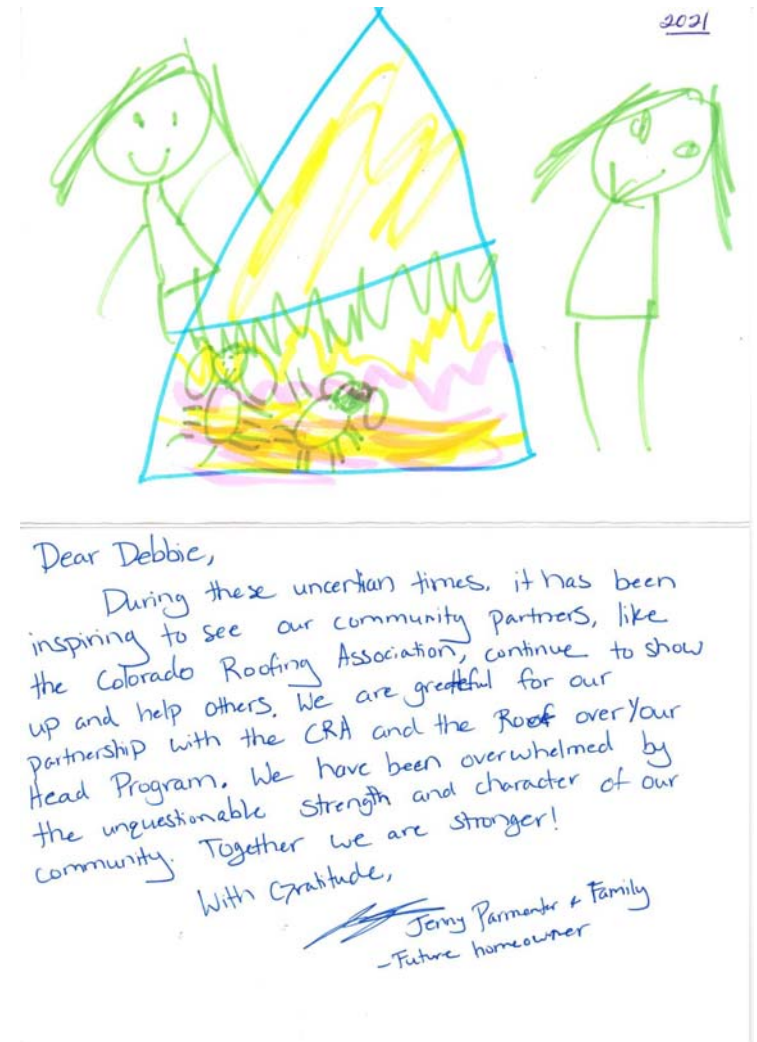 2021
Dear Debbie,
During these uncertian times, it has been
inspiring to see our community partners, like
the Colorado Roofing Association, continue to show
up and help others. We are greatful for our
partnership with the CRA and the Roof over Your
Head Program. We have been overwhelmed by
the unquestionable strength and character of our
community. Together we are stronger!
With Gratitude,
Jenny Parmenter + Family
-Future homeowner